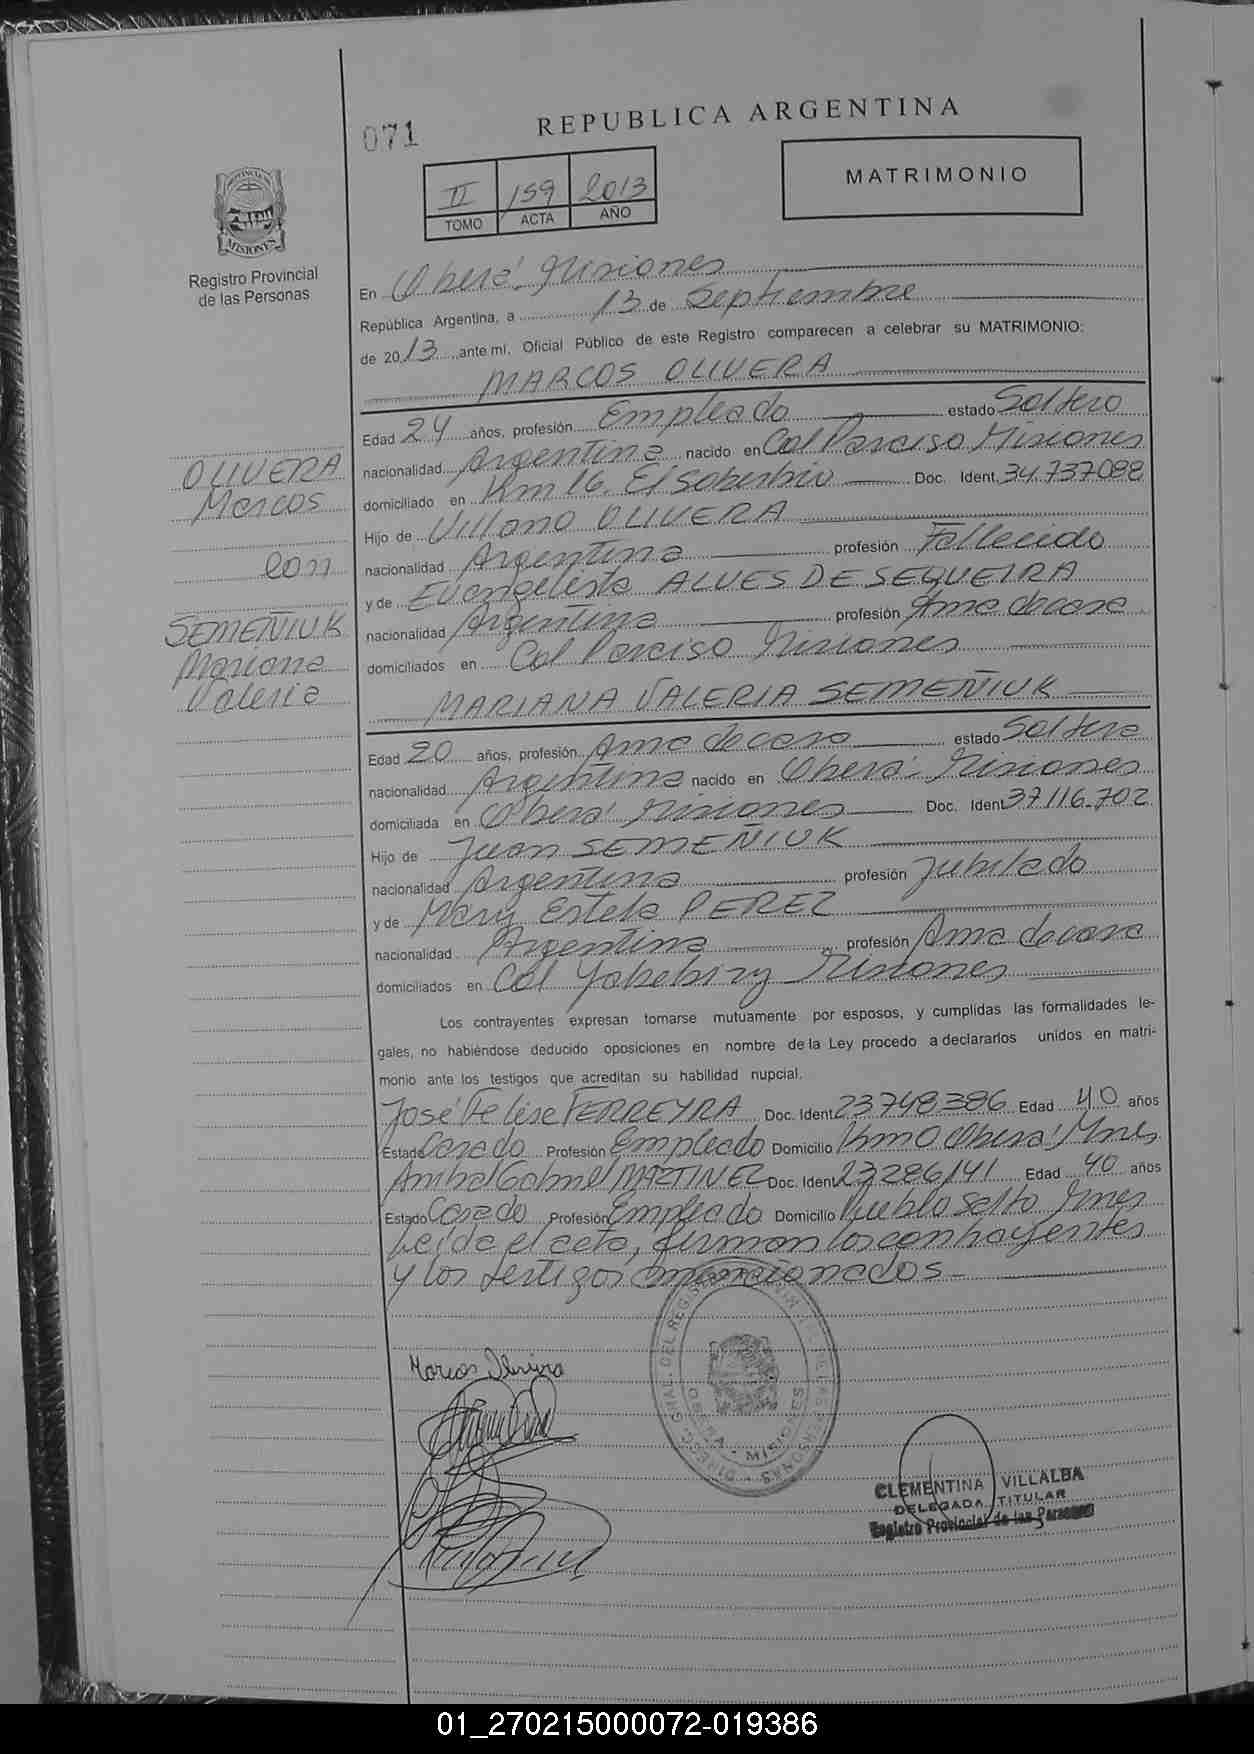 071
REPUBLICA ARGENTINA
II 159 2013
TOMO ACTA AÑO
MATRIMONIO
PROVINCIA
MISIONES
Registro Provincial
de las Personas
En Oberá, Misiones
República Argentina, a 13 de Septiembre
de 2013 ante mí, Oficial Público de este Registro comparecen a celebrar su MATRIMONIO:
MARCOS OLIVERA
Edad 24 años, profesión Empleado estado Soltero
nacionalidad Argentina nacido en Col Paraiso Misiones
domiciliado en Km 16. El Soberbio Doc. Ident. 34.737088
Hijo de Villano OLIVERA
nacionalidad Argentina profesión Fallecido
y de Evangelista ALVES DE SEQUEIRA
nacionalidad Argentina profesión Ama de casa
domiciliados en Col Paraiso Misiones
OLIVERA
Marcos
con
SEMEÑIUK
Mariana
Valeria
MARIANA VALERIA SEMEÑIUK
Edad 20 años, profesión Ama de casa estado Soltera
nacionalidad Argentina nacido en Oberá Misiones
domiciliada en Oberá Misiones Doc. Ident 37116.702
Hijo de Juan SEMEÑIUK
nacionalidad Argentina profesión Jubilado
y de Mary Estela PEREZ
nacionalidad Argentina profesión Ama de casa
domiciliados en Col Yabebiry Misiones
Los contrayentes expresan tomarse mutuamente por esposos, y cumplidas las formalidades le-
gales, no habiéndose deducido oposiciones en nombre de la Ley procedo a declararlos unidos en matri-
monio ante los testigos que acreditan su habilidad nupcial.
José Felise FERREYRA Doc. Ident 23748386 Edad 40 años
Estado Casado Profesión Empleado Domicilio Km 0 Oberá Mnes
Anibal Gabriel MARTINEZ Doc. Ident 23286141 Edad 40 años
Estado Casado Profesión Empleado Domicilio Pueblo Salto Mnes
Leída el acta, firman los contrayentes
y los testigos mencionados
Marcos Olivera
OBERA - MISIONES
CLEMENTINA VILLALBA
DELEGADA TITULAR
Registro Provincial de las Personas
01_270215000072-019386